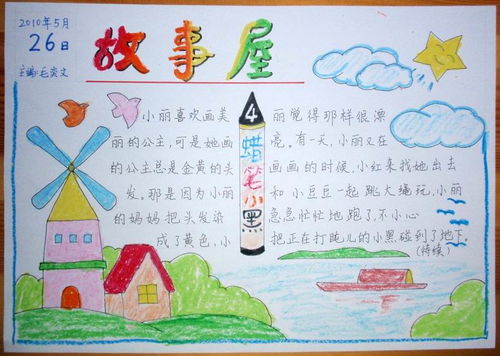 2010年5月
26日
主编:毛奕文
故事屋
4
蜡笔小黑
小丽喜欢画美
丽的公主,可是她画
的公主总是金黄的头
发。那是因为小丽
的妈妈把头发染
成了黄色,小
丽觉得那样很漂
亮。有一天,小丽又在
画画的时候,小红来找她出去
和小豆豆一起跳大绳玩,小丽
急急忙忙地跑了,不小心
把正在打盹儿的小黑碰到了地下。
(待续)